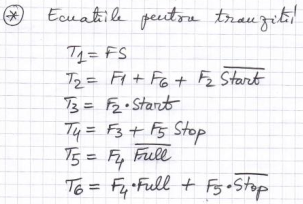 ⊛ Ecuatiile pentru tranziții
T1 = FS
T2 = F1 + F6 + F2 S̅t̅a̅r̅t̅
T3 = F2 · Start
T4 = F3 + F5 Stop
T5 = F4 F̅u̅l̅l̅
T6 = F4 · Full + F5 · S̅t̅o̅p̅